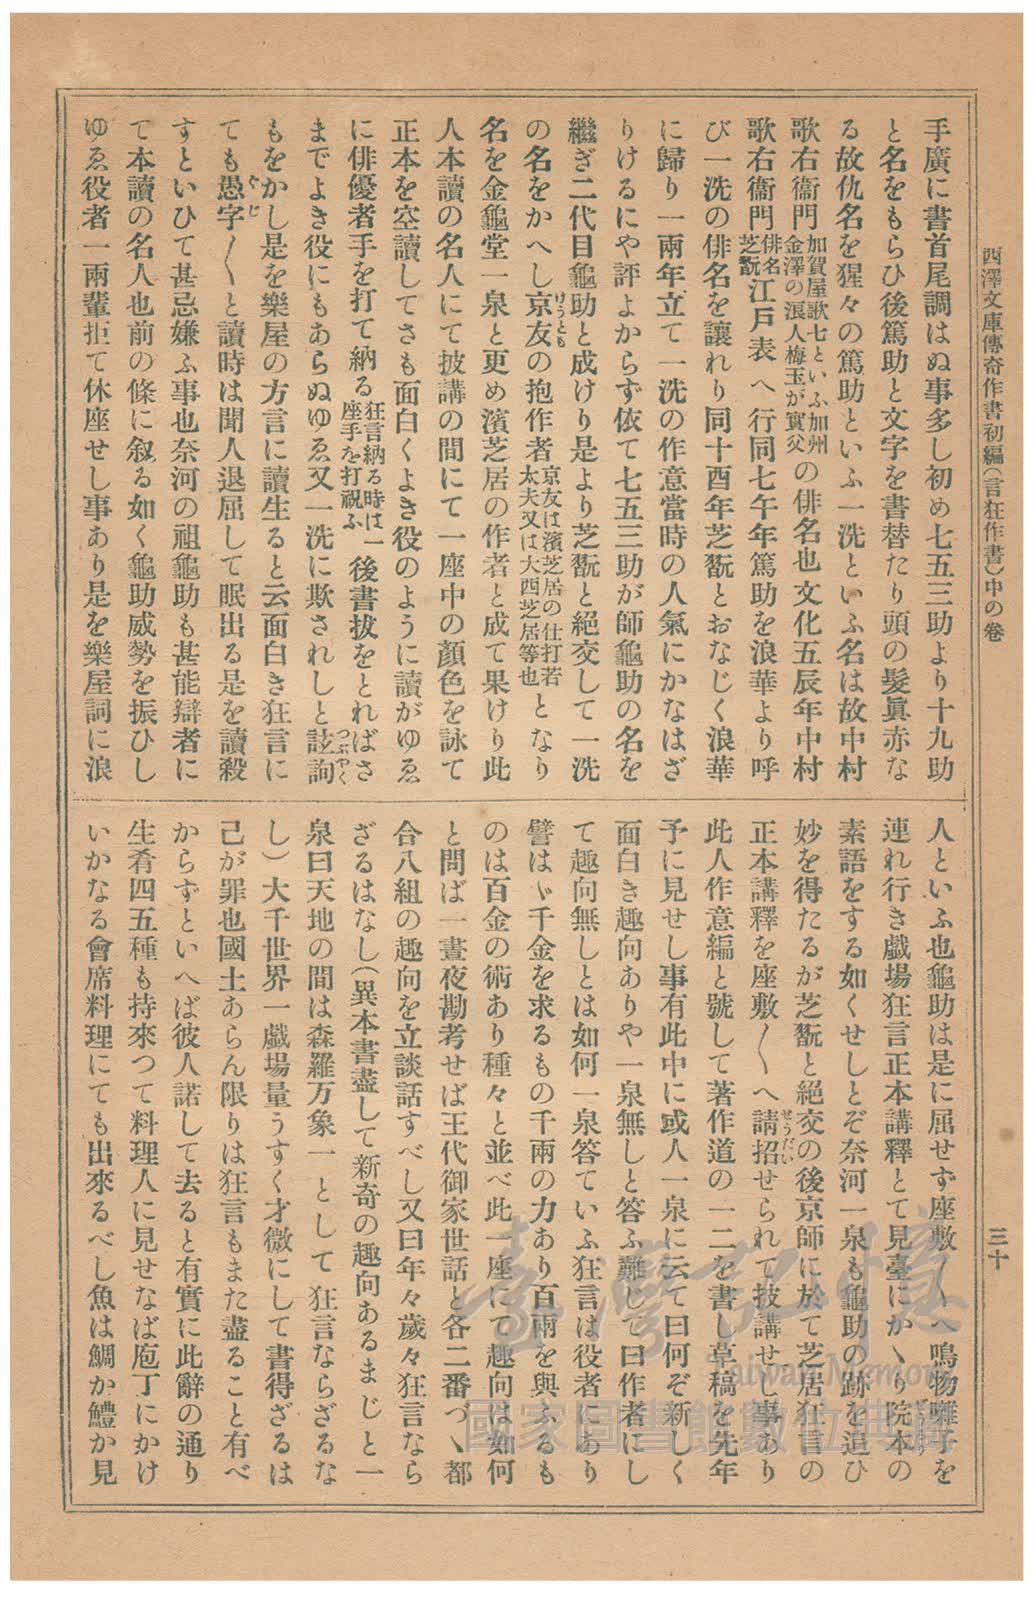 西澤文庫傳奇作書初編(言狂作書)中の卷
三十
手廣に書首尾調はぬ事多し初め七五三助より十九助
と名をもらひ後篤助と文字を書替たり頭の髮眞赤な
る故仇名を猩々の篤助といふ一洗といふ名は故中村
歌右衞門加賀屋歌七といふ加州金澤の浪人梅玉が實父の俳名也文化五辰年中村
歌右衞門俳名芝翫江戶表へ行同七午年篤助を浪華より呼
び一洗の俳名を讓れり同十酉年芝翫とおなじく浪華
に歸り一兩年立て一洗の作意當時の人氣にかなはざ
りけるにや評よからず依て七五三助が師龜助の名を
繼ぎ二代目龜助と成けり是より芝翫と絕交して一洗
の名をかへし京友けうともの抱作者京友は濱芝居の仕打若太夫又は大西芝居等也となり
名を金龜堂一泉と更め濱芝居の作者と成て果けり此
人本讀の名人にて披講の間にて一座中の顏色を詠て
正本を空讀してさも面白くよき役のように讀がゆゑ
に俳優者手を打て納る狂言納る時は一座手を打祝ふ後書拔をとればさ
までよき役にもあらぬゆゑ又一洗に欺されしと詃詢つぶやく
もをかし是を樂屋の方言に讀生ると云面白き狂言に
ても愚字ぐじ〱と讀時は聞人退屈して眠出る是を讀殺
すといひて甚忌嫌ふ事也奈河の祖龜助も甚能辯者に
て本讀の名人也前の條に叙る如く龜助威勢を振ひし
ゆゑ役者一兩輩拒て休座せし事あり是を樂屋詞に浪
人といふ也龜助は是に屈せず座敷〱へ鳴物囃子を
連れ行き戲場狂言正本講釋とて見臺にかゝり院本の
素語をする如くせしとぞ奈河一泉も龜助の跡を追ひ
妙を得たるが芝翫と絕交の後京師に於て芝居狂言の
正本講釋を座敷〱へ請招せうだいせられて披講せし事あり
此人作意編と號して著作道の一二を書し草稿を先年
予に見せし事有此中に或人一泉に云て曰何ぞ新しく
面白き趣向ありや一泉無しと答ふ難じて曰作者にし
て趣向無しとは如何一泉答ていふ狂言は役者にあり
譬はゞ千金を求るもの千兩の力あり百兩を與ふるも
のは百金の術あり種々と並べ此一座にて趣向は如何
と問ば一晝夜勘考せば王代御家世話と各二番づゝ都
合八組の趣向を立談話すべし又曰年々歲々狂言なら
ざるはなし(異本書盡して新奇の趣向あるまじと一
泉曰天地の間は森羅万象一として狂言ならざるな
し)大千世界一戲場量うすく才微にして書得ざるは
己が罪也國土あらん限りは狂言もまた盡ること有べ
からずといへば彼人諾して去ると有實に此辭の通り
生肴四五種も持來つて料理人に見せなば庖丁にかけ
いかなる會席料理にても出來るべし魚は鯛か鱧か見
臺灣記憶
Taiwan Memory
國家圖書館數位典藏